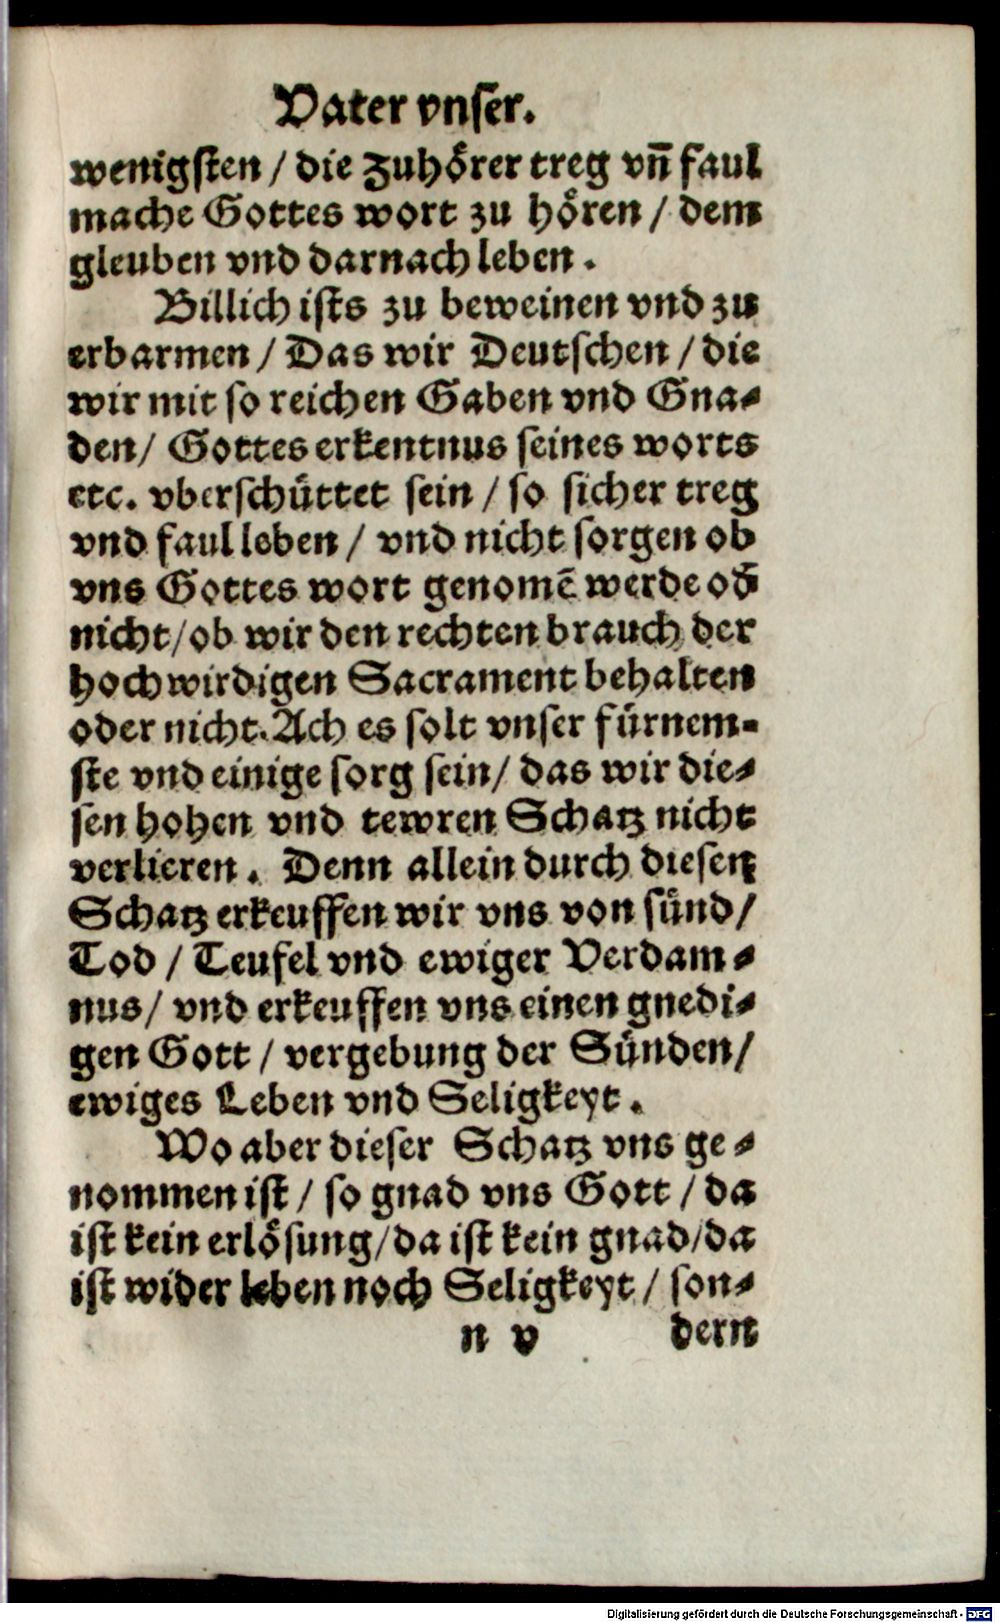 Vater vnser.
wenigsten / die zuhörer treg vn̄ faul
mache Gottes wort zu hören / dem
gleuben vnd darnach leben.
Billich ists zu beweinen vnd zu
erbarmen / Das wir Deutschen / die
wir mit so reichen Gaben vnd Gna⸗
den / Gottes erkentnus seines worts
etc. vberschüttet sein / so sicher treg
vnd faul leben / vnd nicht sorgen ob
vns Gottes wort genomē werde od̄
nicht / ob wir den rechten brauch der
hochwirdigen Sacrament behalten
oder nicht. Ach es solt vnser fürnem⸗
ste vnd einige sorg sein / das wir die⸗
sen hohen vnd tewren Schatz nicht
verlieren. Denn allein durch diesen
Schatz erkeuffen wir vns von sünd /
Tod / Teufel vnd ewiger Verdam⸗
nus / vnd erkeuffen vns einen gnedi⸗
gen Gott / vergebung der Sünden /
ewiges Leben vnd Seligkeyt.
Wo aber dieser Schatz vns ge⸗
nommen ist / so gnad vns Gott / da
ist kein erlösung / da ist kein gnad / da
ist wider leben noch Seligkeyt / son⸗
n v dern
Digitalisierung gefördert durch die Deutsche Forschungsgemeinschaft - DFG